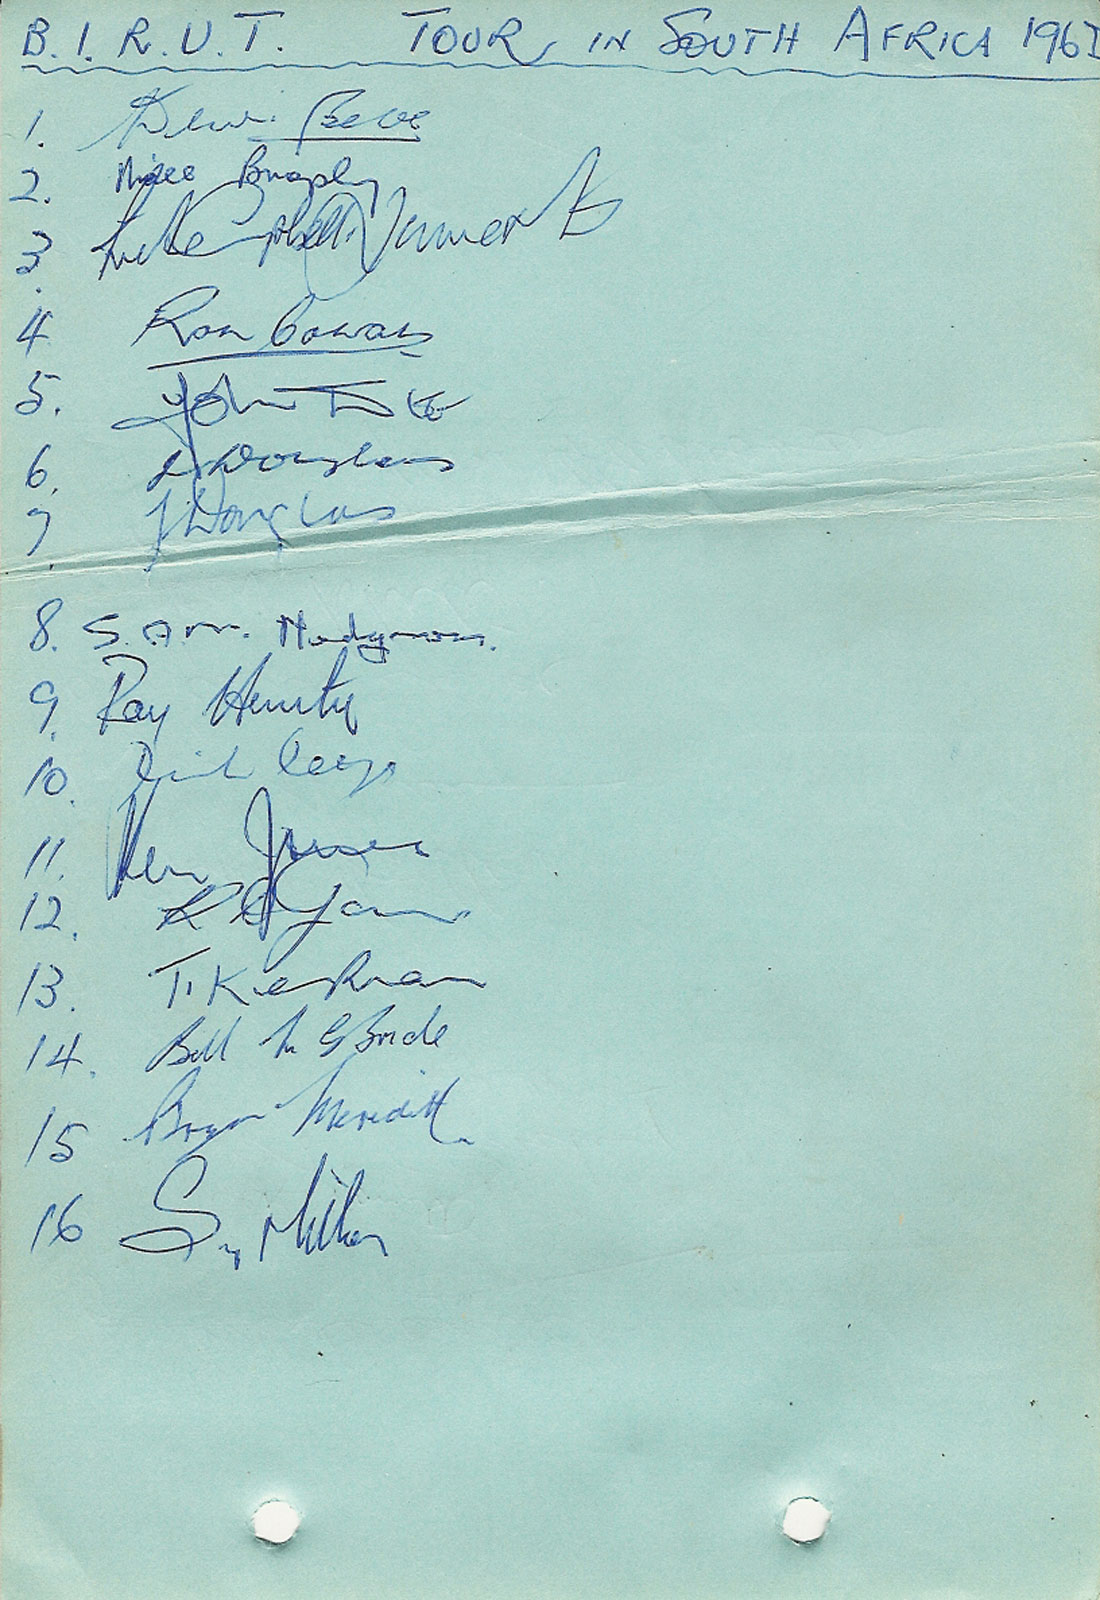 B.I.R.U.T. TOUR IN SOUTH AFRICA 1962
1. Dewi Bebb
2. Niall Brophy
3. Mike Campbell-Lamerton
4 Ron Cowan
5.
6. Douglas
7. J Douglas
8. S.A.M. Hodgson.
9. Ray Hunter
10.
11. Ken Jones
12. K D Jones
13. T. Kiernan
14. Bill McBride
15 Bryn Meredith
16 Syd Millar